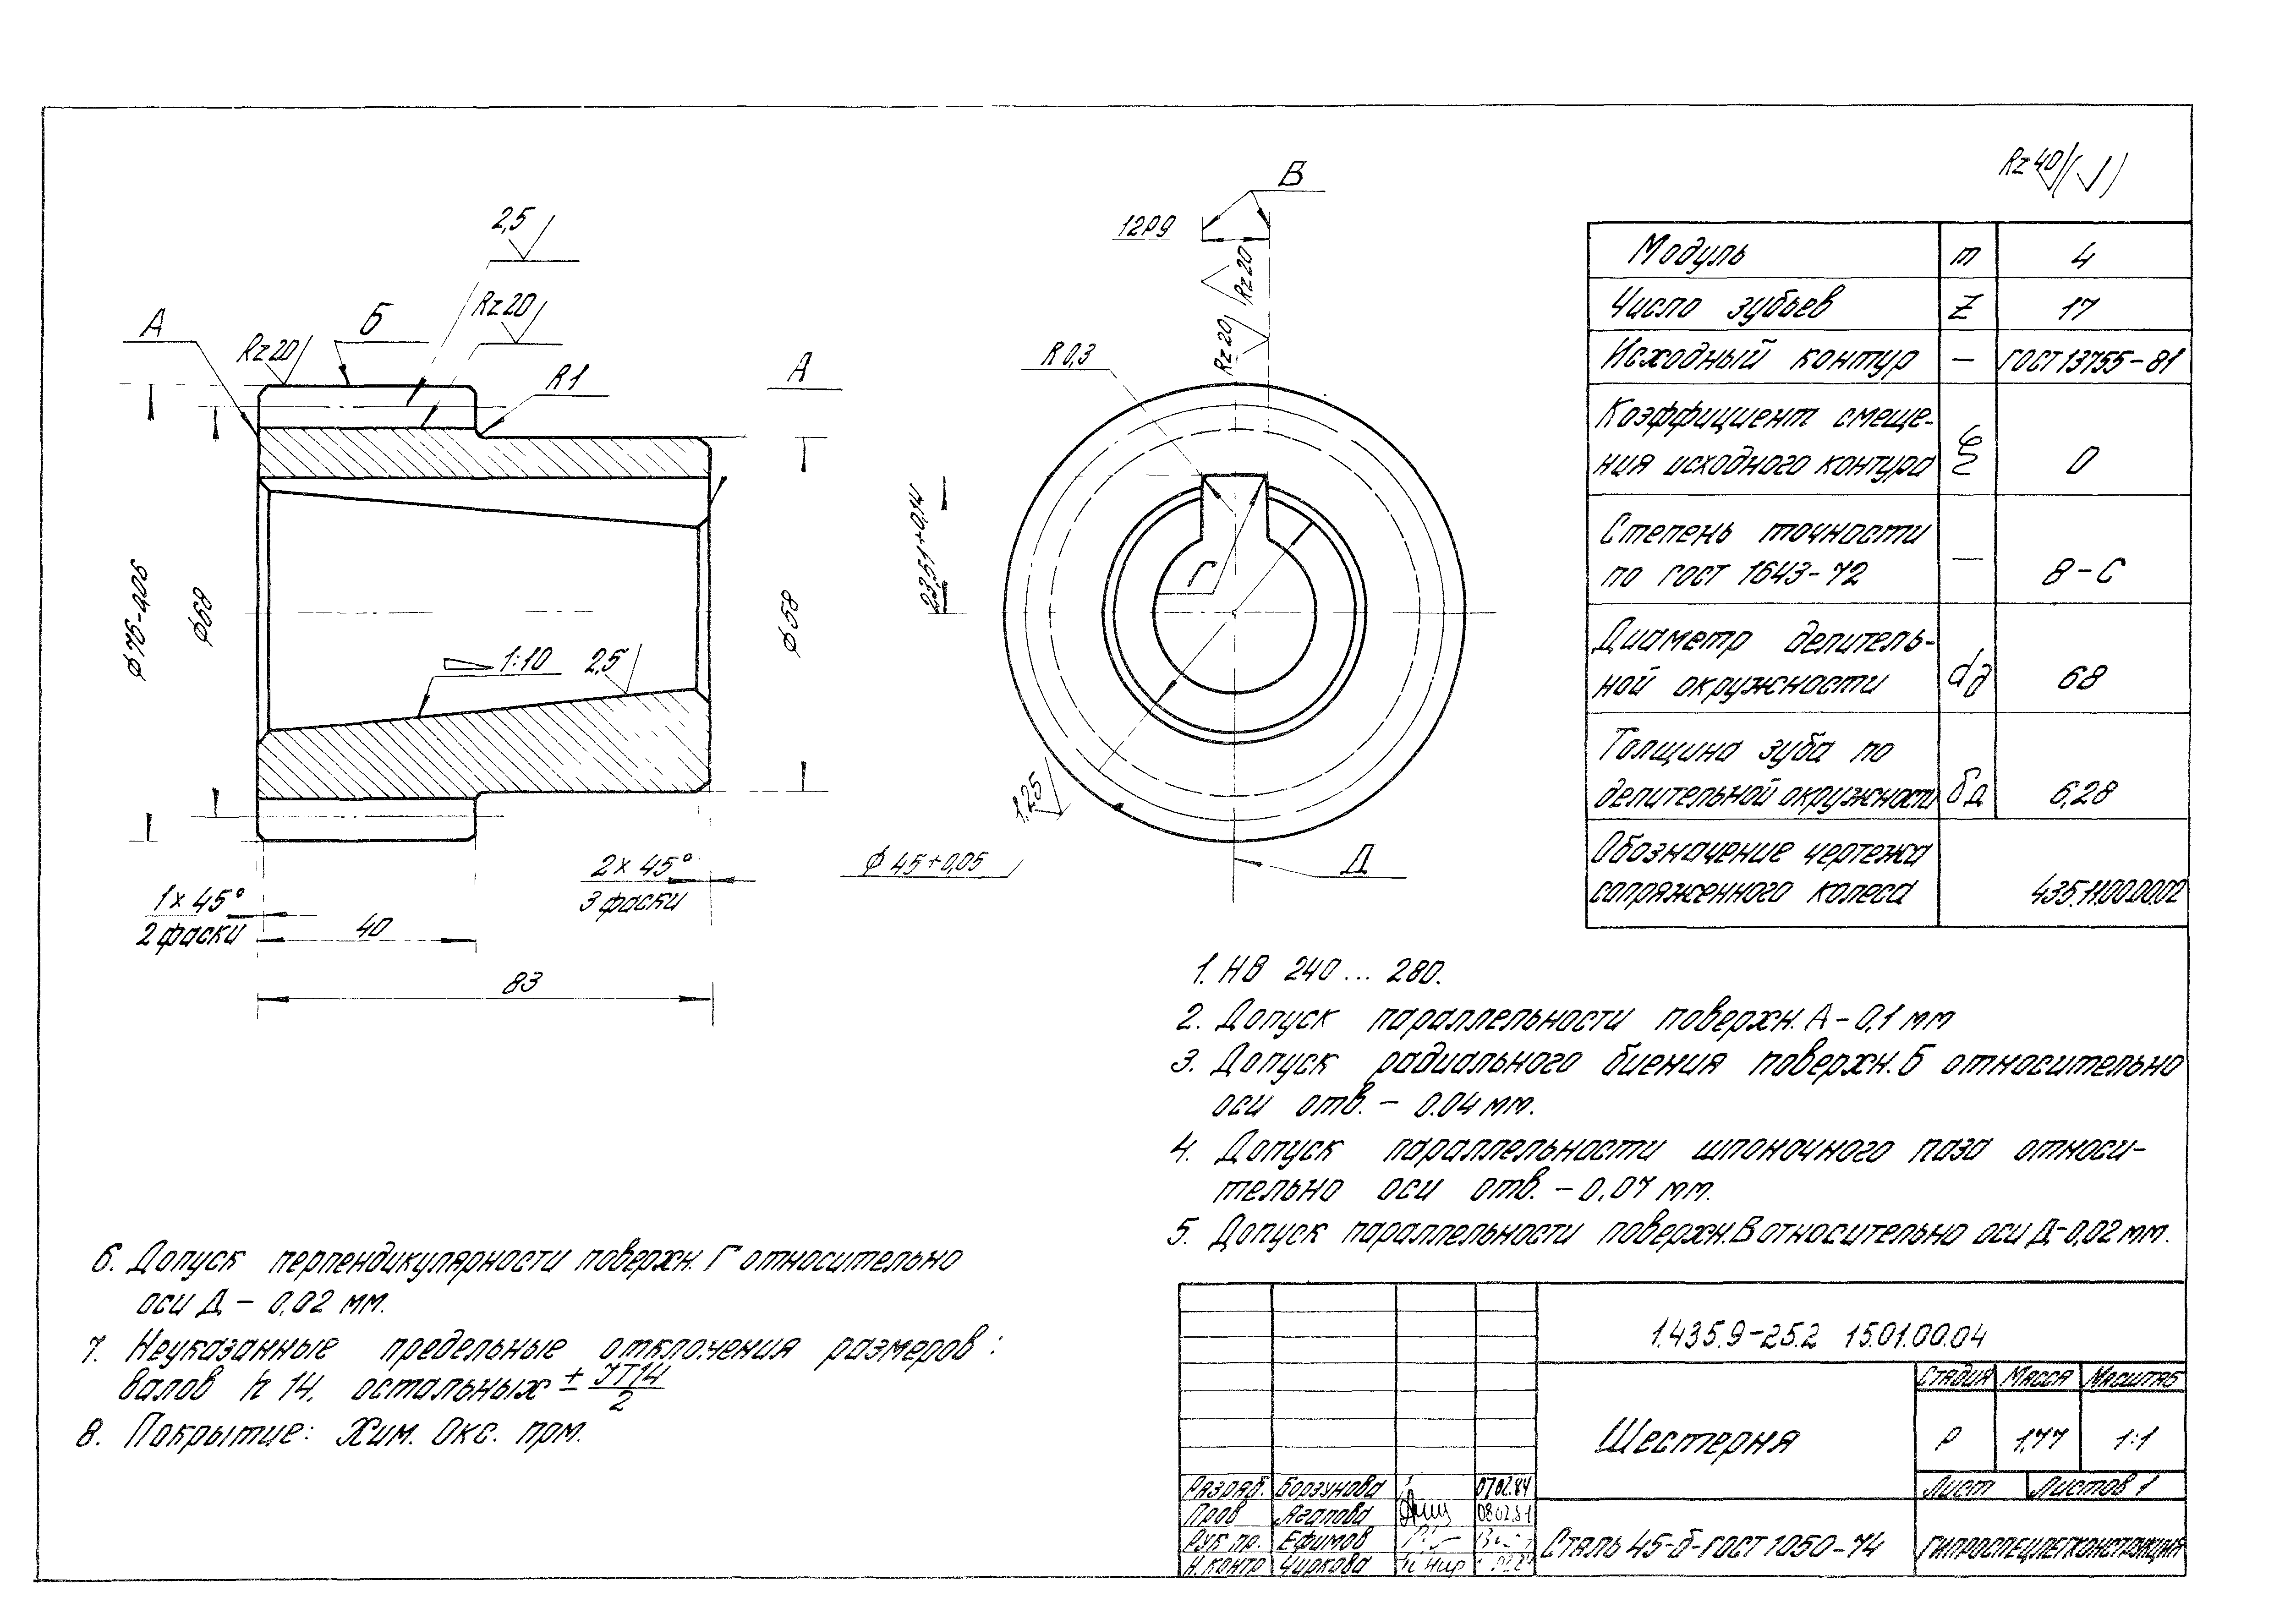 Rz 40 ( )
2,5
Rz 20
А
Б
Rz 20
R 1
А
⌀76-0,06
⌀68
⌀58
1:10
2,5
1×45°
2 фаски
40
2×45°
3 фаски
83
В
12Р9
Rz 20
Rz 20
R 0,3
Г
1,25
⌀45+0,05
Д
Модуль m 4
Число зубьев Z 17
Исходный контур — ГОСТ 13755-81
Коэффициент смеще-
ния исходного контура ξ 0
Степень точности
по ГОСТ 1643-72 — 8-С
Диаметр делитель-
ной окружности dд 68
Толщина зуба по
делительной окружности 6,28
Обозначение чертежа
сопряженного колеса 435.11.00.00.02
1. НВ 240... 280.
2. Допуск параллельности поверхн. А - 0,1 мм
3. Допуск радиального биения поверхн. Б относительно
оси отв. - 0.04 мм.
4. Допуск параллельности шпоночного паза относи-
тельно оси отв. - 0,07 мм.
5. Допуск параллельности поверхн. В относительно оси Д-0,02 мм.
6. Допуск перпендикулярности поверхн. Г относительно
оси Д - 0,02 мм.
7. Неуказанные предельные отклонения размеров:
валов h 14, остальных ± JT14/2
8. Покрытие: Хим. Окс. прм.
1.435.9-25.2 15.01.00.04
Стадия Масса Масштаб
Шестерня Р 1,77 1:1
Лист Листов 1
Разраб. Борзунова 07.02.84
Пров Агапова
Рук пр. Ефимов
Н. контр Чиркова
Сталь 45-б-ГОСТ 1050-74
ГИПРОСПЕЦЛЕГКОНСТРУКЦИЯ